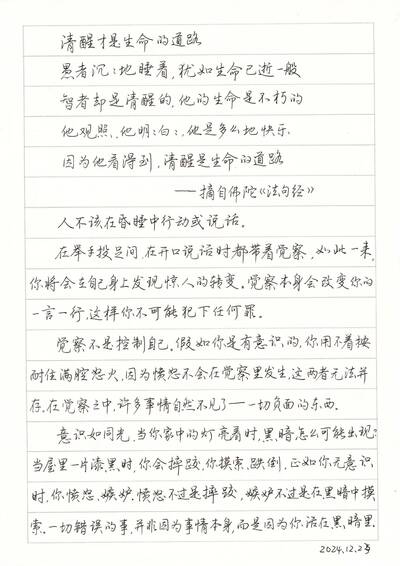 清醒才是生命的道路
愚者沉:地睡着,犹如生命已逝一般
智者却是清醒的,他的生命是不朽的
他观照,他明:白:,他是多么地快乐.
因为他看得到,清醒是生命的道路
——摘自佛陀《法句经》
人不该在昏睡中行动或说话。
在举手投足间,在开口说话时都带着觉察,如此一来,
你将会在自己身上发现惊人的转变。觉察本身会改变你的
一言一行,这样你不可能犯下任何罪。
觉察不是控制自己。假如你是有意识的,你用不着按
耐住满腔怒火,因为愤怒不会在觉察里发生,这两者无法并
存,在觉察之中,许多事情自然不见了——一切负面的东西.
意识如同光,当你家中的灯亮着时,黑暗怎么可能出现?
当屋里一片漆黑时,你会摔跤,你摸索、跌倒。正如你无意识
时,你愤怒、嫉妒.愤怒不过是摔跤,嫉妒不过是在黑暗中摸
索。一切错误的事,并非因为事情本身,而是因为你活在黑暗里.
2024.12.23